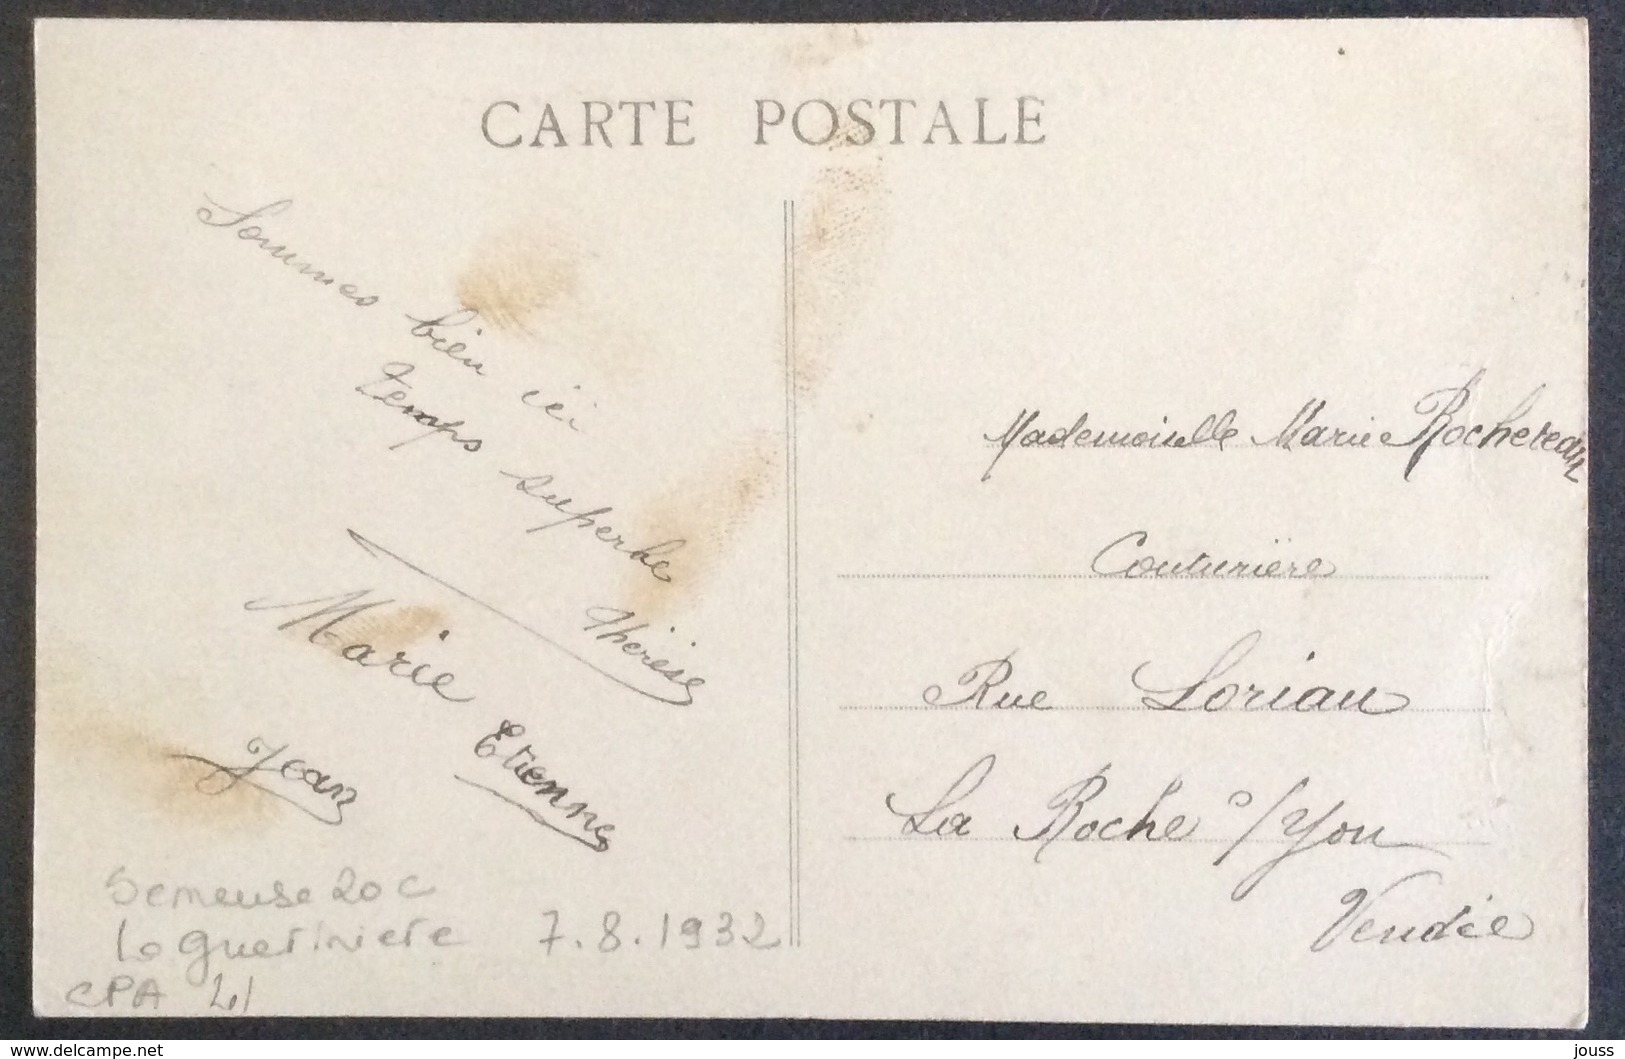 CARTE POSTALE
Sommes bien ici
temps superbe
Thérèse
Marie
Etienne
Jean
Semeuse 20c
la gueriniere 7.8.1932
CPA
Mademoiselle Marie Rochereau
Couturière
Rue Lorian
La Roche s/Yon
Vendée
www.delcampe.net
jouss